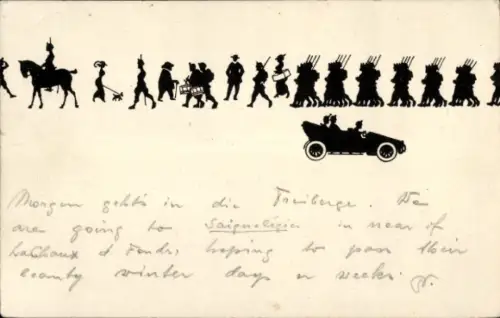 Morgen geht's in die Freiberge. We
are going to Saignelégier in near of
Lachaux d Fonds, hoping to pass their
beauty winter days or weeks.